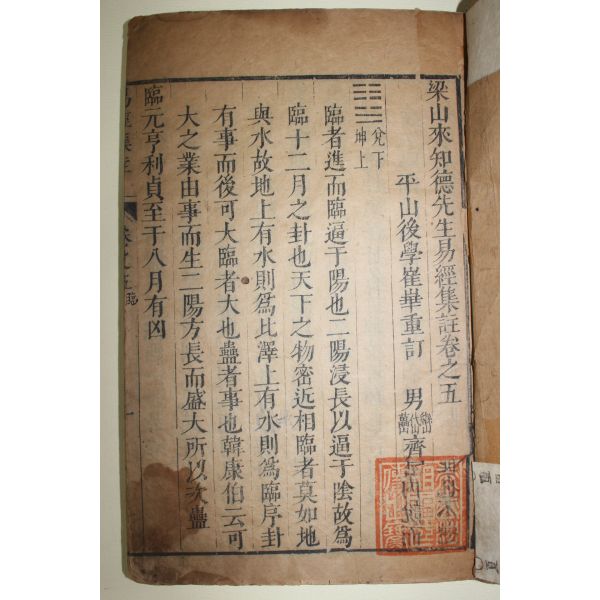 梁山來知德先生易經集註卷之五
平山後學崔華重訂 男
齊
兌下
坤上
臨者進而臨逼于陽也二陽浸長以逼于陰故爲
臨十二月之卦也天下之物密近相臨者莫如地
與水故地上有水則爲比澤上有水則爲臨序卦
有事而後可大臨者大也蠱者事也韓康伯云可
大之業由事而生二陽方長而盛大所以次蠱
臨元亨利貞至于八月有凶
易經集註
卷之五
臨
一